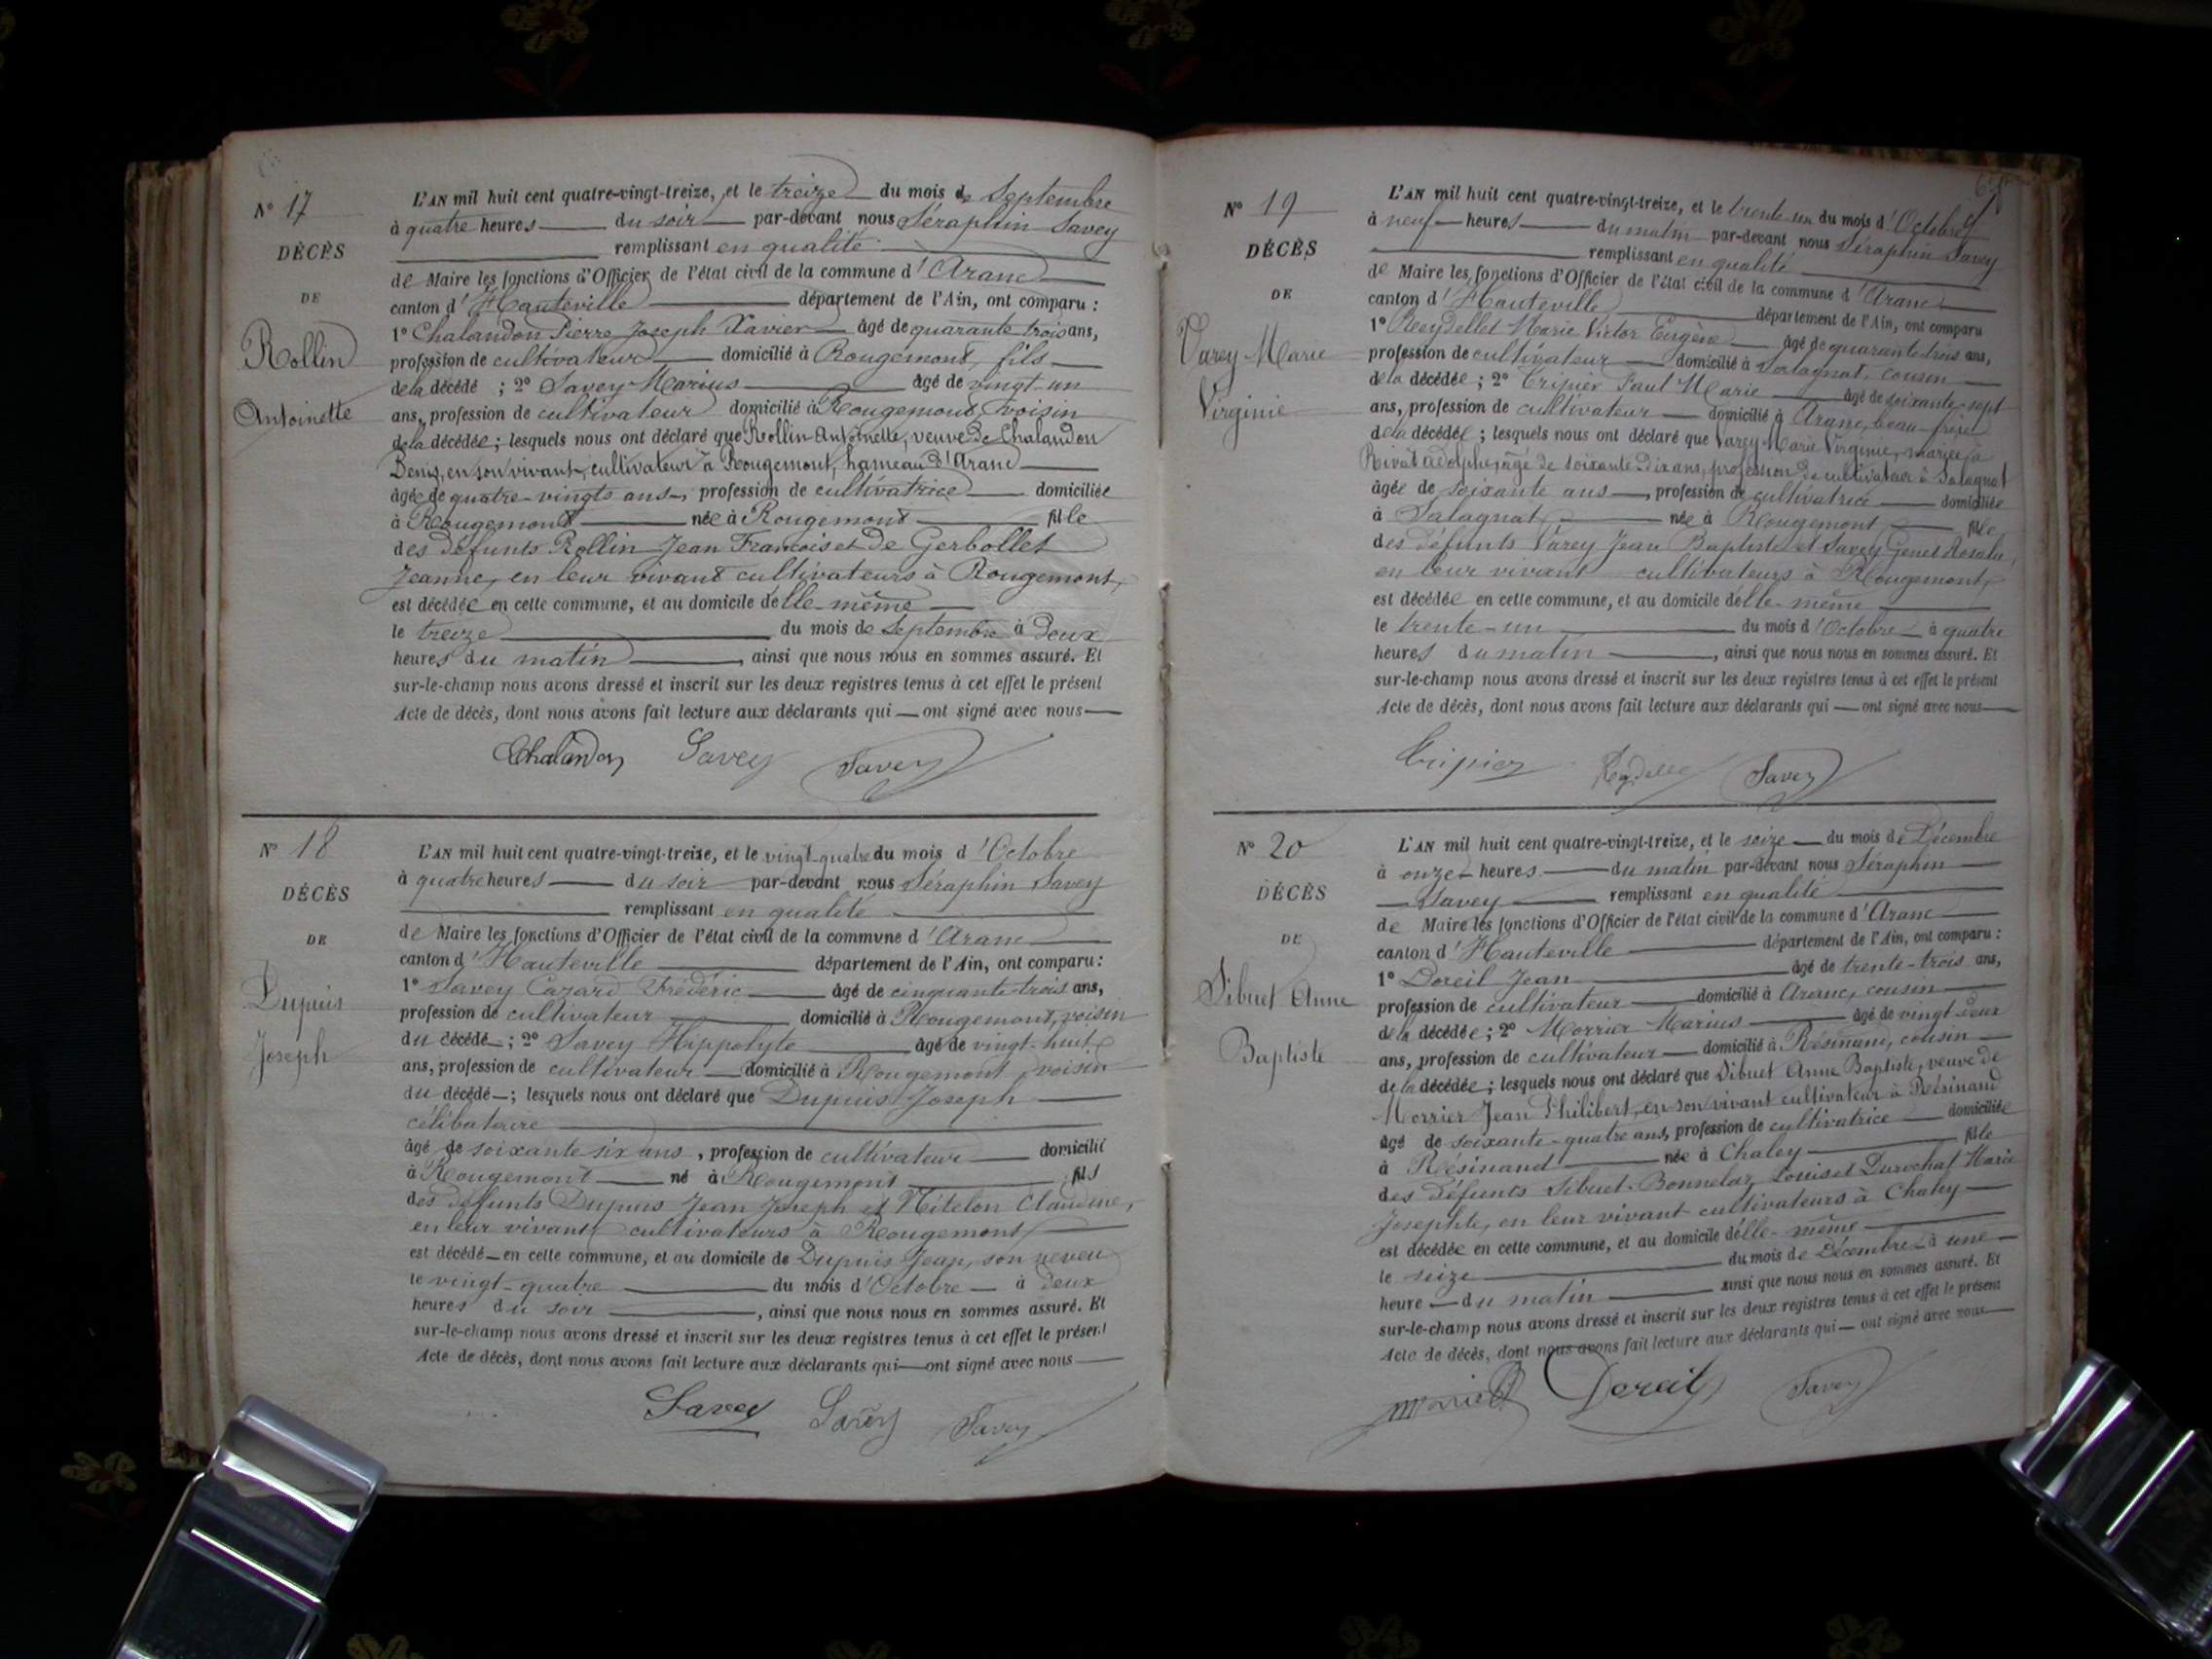 N° 17
DÉCÈS
DE
Rollin
Antoinette
L'AN mil huit cent quatre-vingt-treize, et le treize du mois de Septembre
à quatre heures du soir par-devant nous Séraphin Savey
remplissant en qualité
de Maire les fonctions d'Officier de l'état civil de la commune d'Aranc
canton d'Hauteville département de l'Ain, ont comparu :
1° Chalandon Pierre Joseph Xavier âgé de quarante-trois ans,
profession de cultivateur domicilié à Rougemont, fils
de la décédé ; 2° Savey Marius âgé de vingt-un
ans, profession de cultivateur domicilié à Rougemont, voisin
de la décédée ; lesquels nous ont déclaré que Rollin Antoinette, veuve de Chalandon
Denis, en son vivant, cultivateur à Rougemont, hameau d'Aranc
âgée de quatre-vingts ans, profession de cultivatrice domiciliée
à Rougemont née à Rougemont fille
des défunts Rollin Jean François et de Gerbollet
Jeanne, en leur vivant cultivateurs à Rougemont,
est décédée en cette commune, et au domicile d'elle-même
le treize du mois de Septembre à deux
heures du matin, ainsi que nous nous en sommes assuré. Et
sur-le-champ nous avons dressé et inscrit sur les deux registres tenus à cet effet le présent
Acte de décès, dont nous avons fait lecture aux déclarants qui — ont signé avec nous
Chalandon Savey Savey
N° 18
DÉCÈS
DE
Dupuis
Joseph
L'AN mil huit cent quatre-vingt-treize, et le vingt-quatre du mois d'Octobre
à quatre heures du soir par-devant nous Séraphin Savey
remplissant en qualité
de Maire les fonctions d'Officier de l'état civil de la commune d'Aranc
canton d'Hauteville département de l'Ain, ont comparu :
1° Savey Cazard Frédéric âgé de cinquante-trois ans,
profession de cultivateur domicilié à Rougemont, voisin
du décédé ; 2° Savey Hippolyte âgé de vingt-huit
ans, profession de cultivateur domicilié à Rougemont, voisin
du décédé ; lesquels nous ont déclaré que Dupuis Joseph
célibataire
âgé de soixante six ans, profession de cultivateur domicilié
à Rougemont né à Rougemont fils
des défunts Dupuis Jean Joseph et Mitelon Claudine,
en leur vivant cultivateurs à Rougemont
est décédé en cette commune, et au domicile de Dupuis Jean, son neveu
le vingt-quatre du mois d'Octobre à deux
heures du soir, ainsi que nous nous en sommes assuré. Et
sur-le-champ nous avons dressé et inscrit sur les deux registres tenus à cet effet le présent
Acte de décès, dont nous avons fait lecture aux déclarants qui — ont signé avec nous
Savey Savey Savey
N° 19
DÉCÈS
DE
Varey Marie
Virginie
L'AN mil huit cent quatre-vingt-treize, et le trente-un du mois d'Octobre
à neuf heures du matin par-devant nous Séraphin Savey
remplissant en qualité
de Maire les fonctions d'Officier de l'état civil de la commune d'Aranc
canton d'Hauteville département de l'Ain, ont comparu
1° Reydellet Marie Victor Eugène âgé de quarante-trois ans,
profession de cultivateur domicilié à Salagnat, cousin
de la décédée ; 2° Tripier Paul Marie âgé de soixante-sept
ans, profession de cultivateur domicilié à Aranc, beau-frère
de la décédée ; lesquels nous ont déclaré que Varey Marie Virginie, mariée à
Rivat Adolphe, âgé de soixante-dix ans, profession de cultivateur à Salagnat
âgée de soixante ans, profession de cultivatrice domiciliée
à Salagnat née à Rougemont fille
des défunts Varey Jean Baptiste et Savey Genet
en leur vivant cultivateurs à Rougemont,
est décédée en cette commune, et au domicile d'elle-même
le trente-un du mois d'Octobre à quatre
heures du matin, ainsi que nous nous en sommes assuré. Et
sur-le-champ nous avons dressé et inscrit sur les deux registres tenus à cet effet le présent
Acte de décès, dont nous avons fait lecture aux déclarants qui — ont signé avec nous
Tripier Savey
N° 20
DÉCÈS
DE
Sibuet Anne
Baptiste
L'AN mil huit cent quatre-vingt-treize, et le seize du mois de Décembre
à onze heures du matin par-devant nous Séraphin
Savey remplissant en qualité
de Maire les fonctions d'Officier de l'état civil de la commune d'Aranc
canton d'Hauteville département de l'Ain, ont comparu :
1° Doreil Jean âgé de trente-trois ans,
profession de cultivateur domicilié à Aranc, cousin
de la décédée ; 2° Morrier Marius âgé de vingt-deux
ans, profession de cultivateur domicilié à Résinand, cousin
de la décédée ; lesquels nous ont déclaré que Sibuet Anne Baptiste, veuve de
Morrier Jean Philibert, en son vivant cultivateur à Résinand
âgé de soixante-quatre ans, profession de cultivatrice domiciliée
à Résinand née à Chaley fille
des défunts Sibuet-Bonnelaz Louis et Durochat Marie
Josephte, en leur vivant cultivateurs à Chaley
est décédée en cette commune, et au domicile d'elle-même
le seize du mois de Décembre à une
heure du matin ainsi que nous nous en sommes assuré. Et
sur-le-champ nous avons dressé et inscrit sur les deux registres tenus à cet effet le présent
Acte de décès, dont nous avons fait lecture aux déclarants qui — ont signé avec nous
Doreil Savey